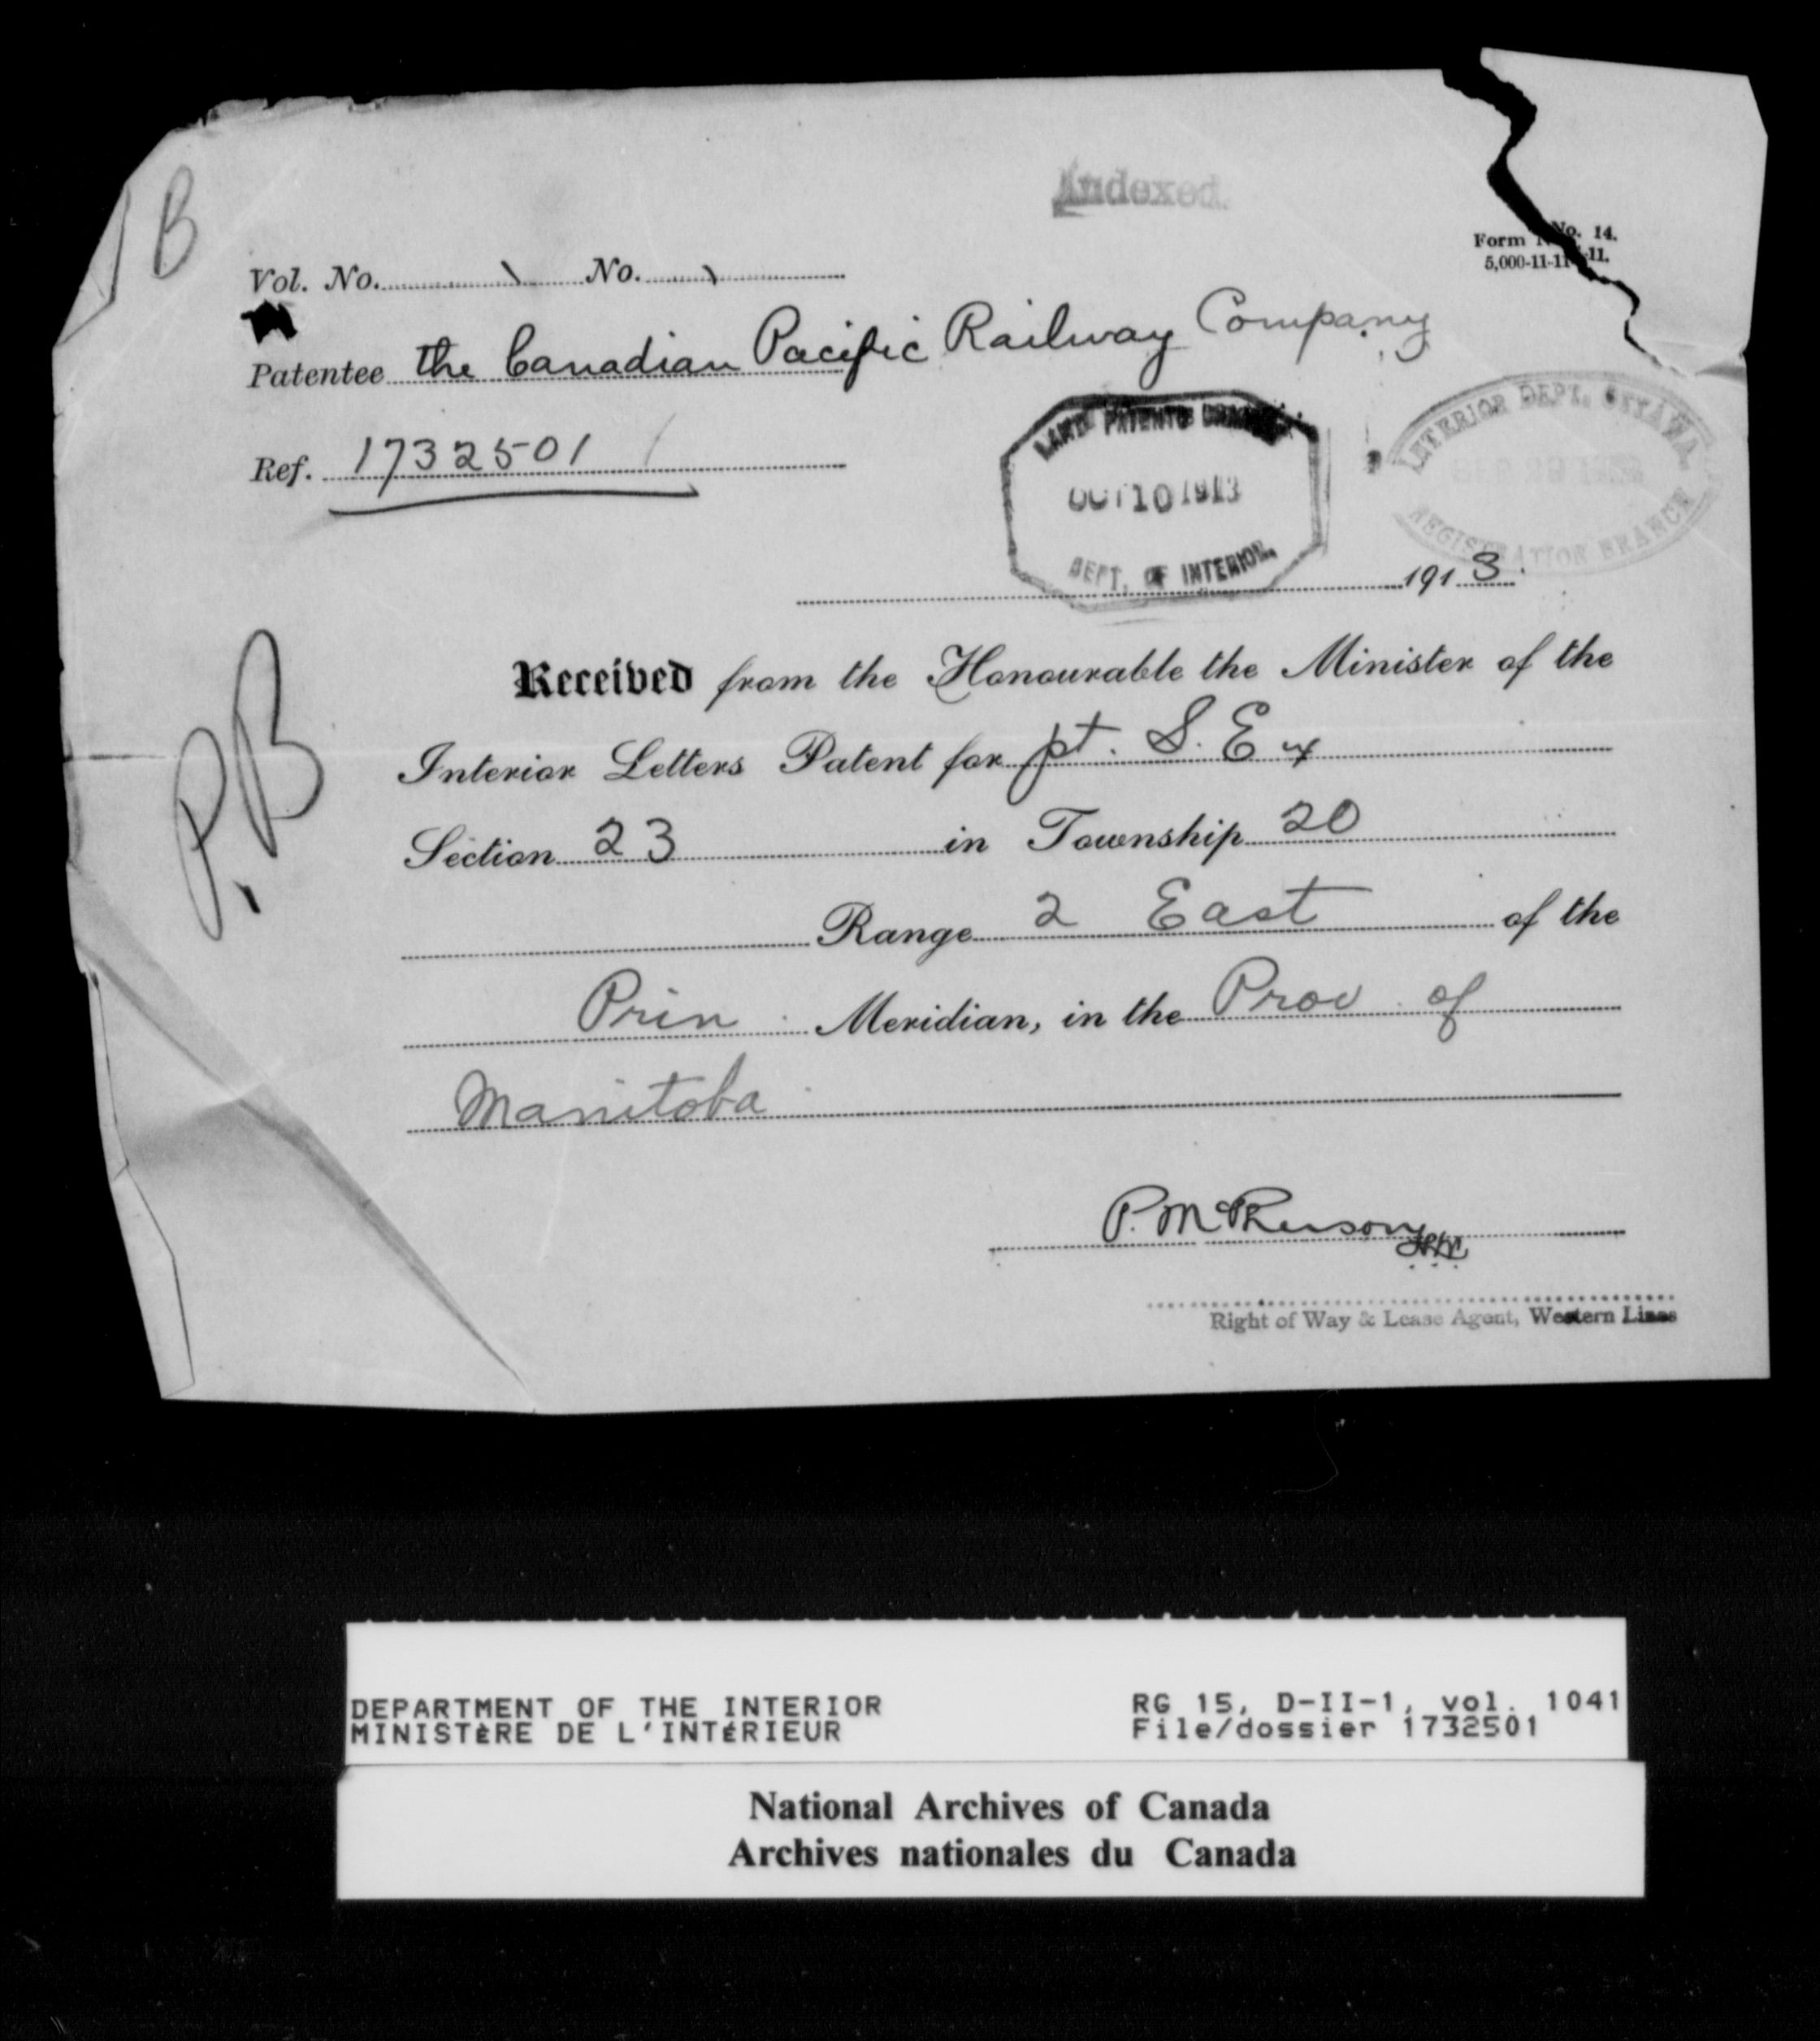 B
Indexed.
Form No. 14.
5,000-11-11.
Vol. No. No.
Patentee the Canadian Pacific Railway Company
Ref. 1732501
LAND PATENTS BRANCH
OCT 10 1913
DEPT. OF INTERIOR.
INTERIOR DEPT. OTTAWA
REGISTRATION BRANCH
1913.
P.B
Received from the Honourable the Minister of the
Interior Letters Patent for pt. S. E 4
Section 23 in Township 20
Range 2 East of the
Prin. Meridian, in the Prov of
Manitoba
P. McPherson
Right of Way & Lease Agent, Western Lines
DEPARTMENT OF THE INTERIOR RG 15, D-II-1, vol. 1041
MINISTÈRE DE L'INTÉRIEUR File/dossier 1732501
National Archives of Canada
Archives nationales du Canada